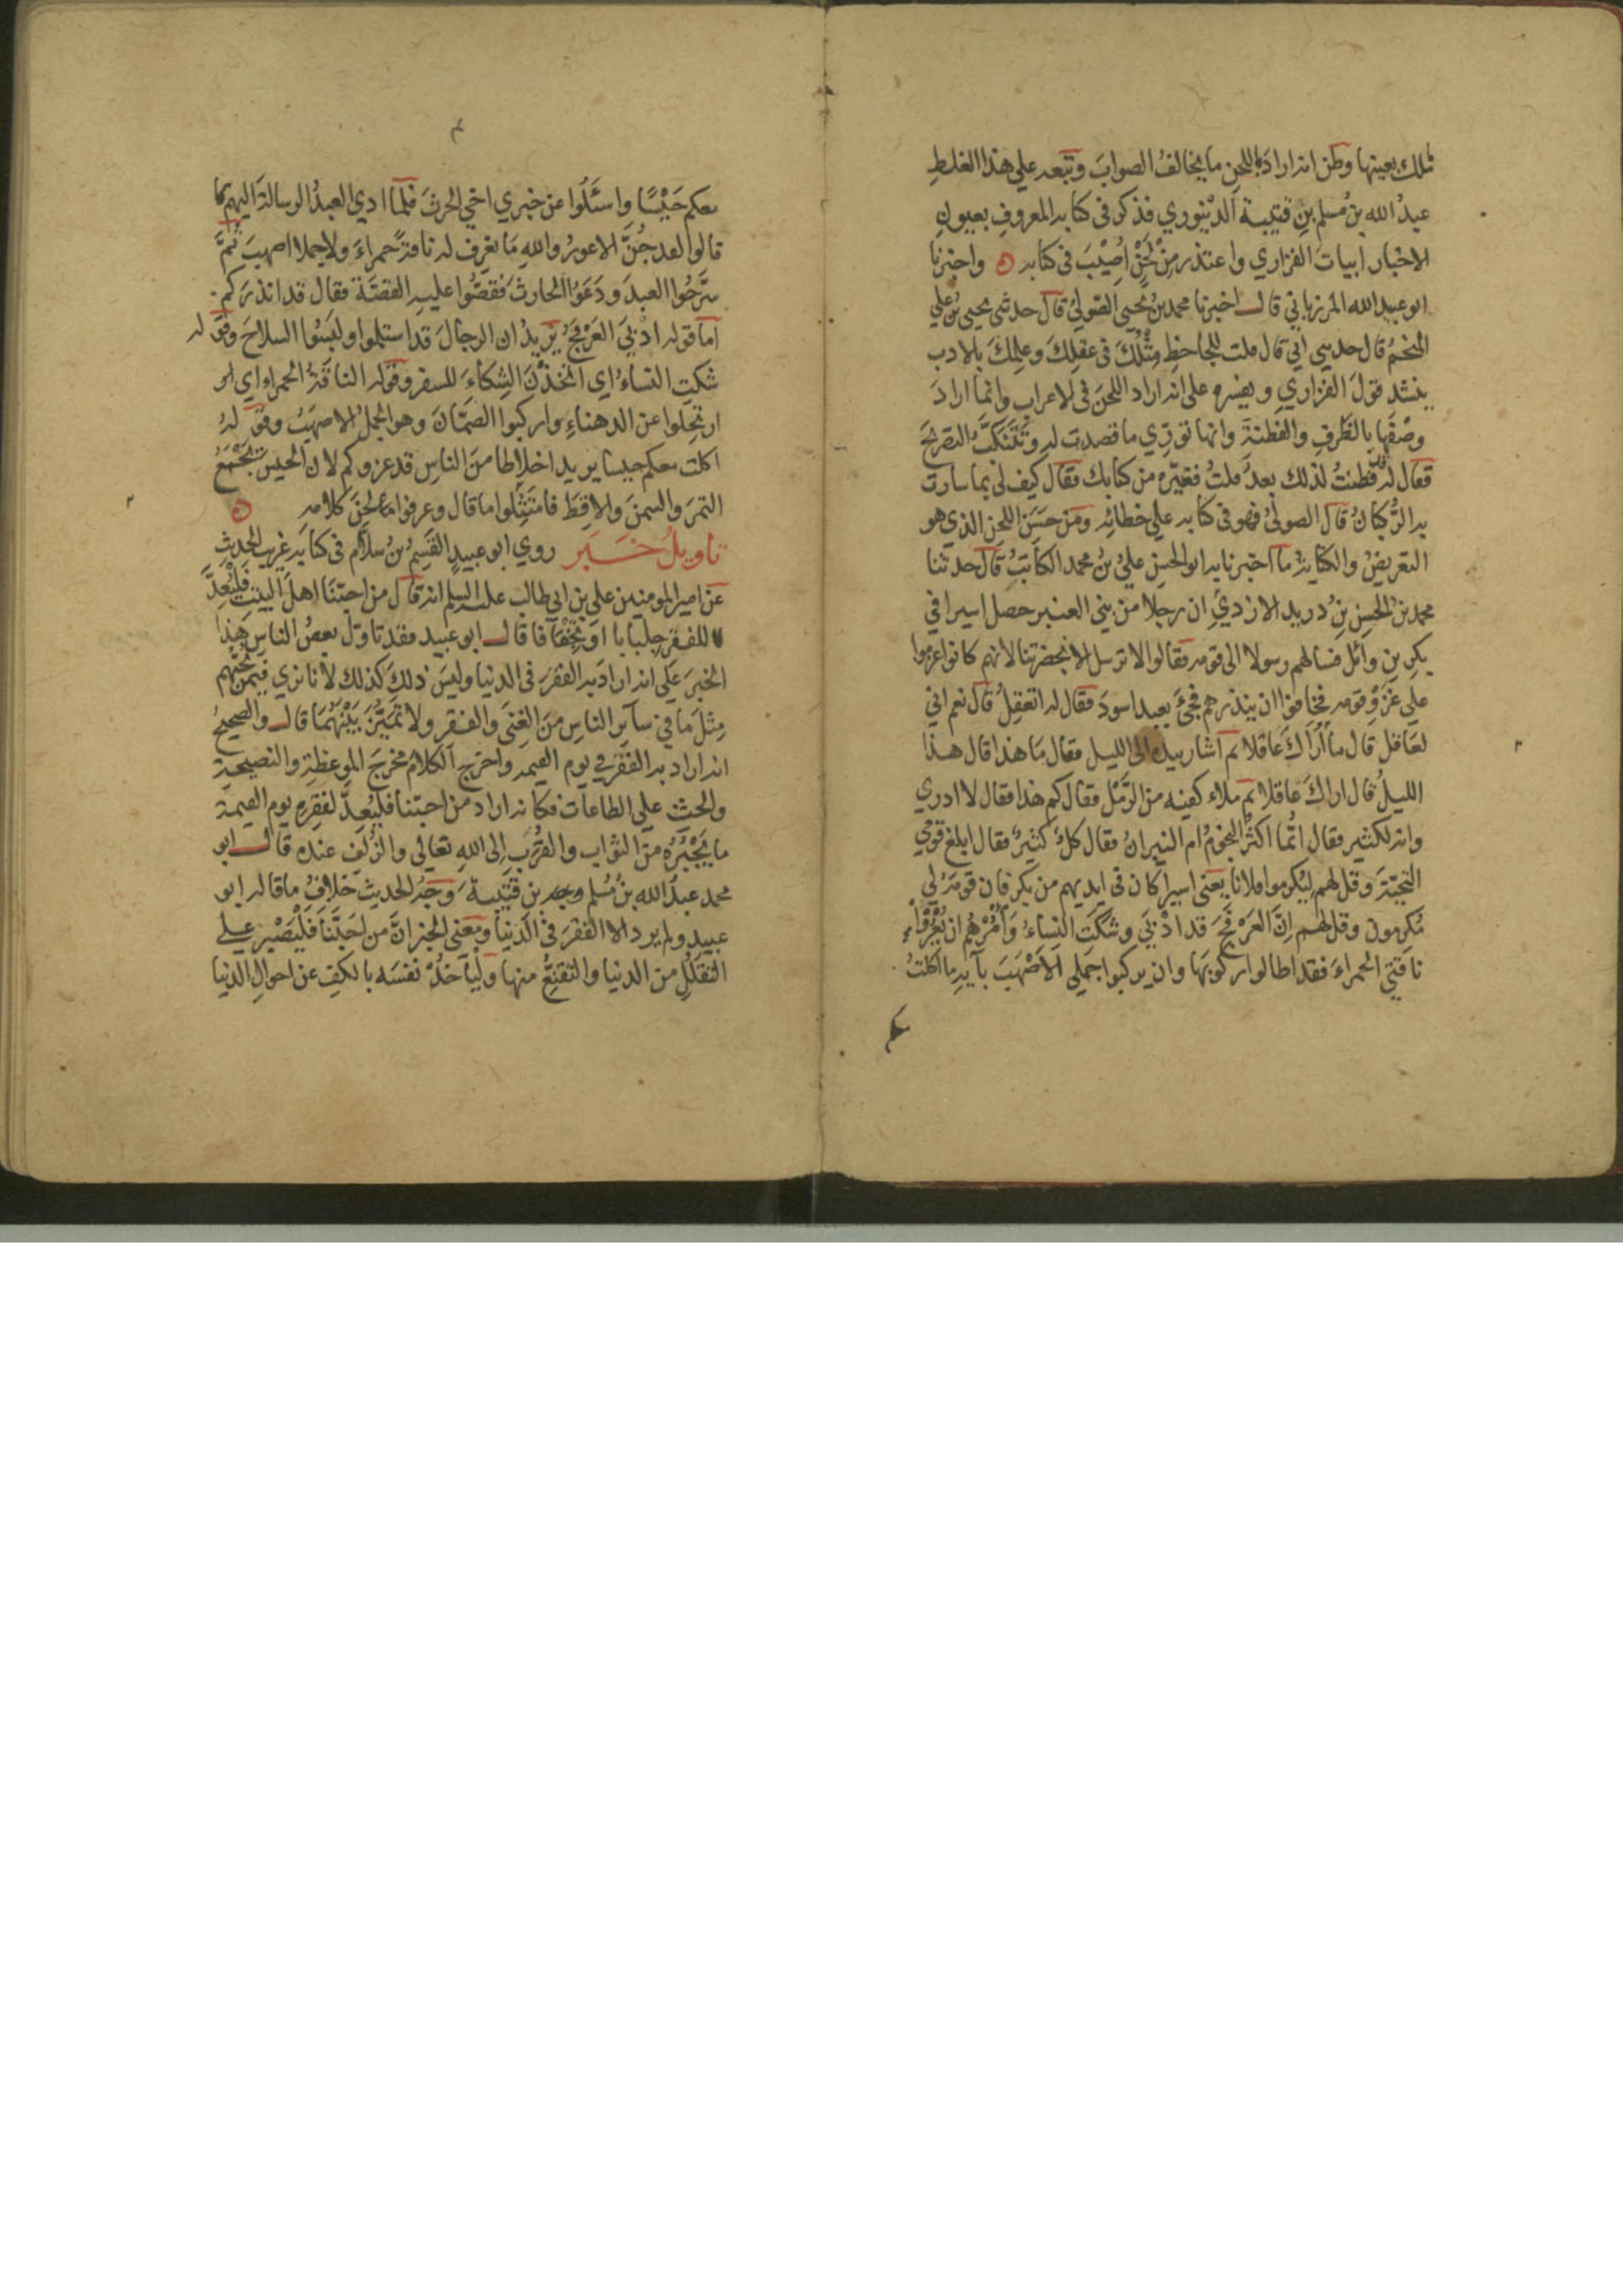 تلك بعينها وظن انه اراد باللحن ما يخالف الصواب وتبعه علي هذا الغلط
عبدُ الله بن مُسلم بنِ قتيبة الدّينوري فذكر في كتابه المعروفِ بعيونِ
الاخبار ابيات الفزاري واعتذر مِنْ لَحْنٍ اُصِيْبَ في كتابه ۞ واخبرنا
ابو عبيد الله المرزباني قال اخبرنا محمد بنُ يحيى الصّوليُ قال حدثني يحيى بنُ علي
المنجمُ قال حدثني ابي قال قلت للجاحظِ مِثْلُكَ في عقلِكَ وعلمِكَ بالادب
ينشد قولَ الفزاريِ ويفسره على انه اراد اللحنَ في الاعراب وانما ارادَ
وصْفَها بالظَرفِ والفطنةِ وانها تورّي ما قصدت له وتَتَنَكَّبُ التصريحَ
فقال له فطنتُ لذلك بعدُ قلتُ فغيّره من كتابك فقال كيف لي بما سارت
به الرُّكبانُ قال الصوليُ فهو في كتابه علي خطائِه ومن حسَنِ اللحنِ الذي هو
التعريضُ والكناية ما اخبرنا به ابو الحسنِ عليُ بنُ محمد الكاتبُ قال حدثنا
محمد بنُ الحسنِ بنِ دُريد الازديِ ان رجلا من بني العنبر حصل اسيرا في
بكرِ بنِ وائل فسالهم رسولا الى قومه فقالوا لا ترسل الا بحضرتنا لانهم كانوا عزموا
علي غَزْوِ قومه فخافوا ان ينذرهم فجيءَ بعبد اسودَ فقال له اتعقِلُ قال نعم اني
لعَاقل قال ما أُراكَ عاقلا ثم اشار بيده الى الليل فقال مَا هذا قال هذا
الليلُ قال اراكَ عاقلا ثم ملاء كفيه من الرَّمْل فقال كم هذا فقال لا ادري
وانه لكثير فقال ايُّما اكثرُ النجومُ ام النيرانُ فقال كلٌ كثيرٌ فقال ابلغ قومي
التحيّةَ وقل لهم ليُكرموا فلانا يعني اسيرا كان في ايديهم من بكر فان قومَهُ لي
مُكرِمونَ وقل لهم اِنَّ العَرْفَجَ قد ادْبَي وشَكَتِ النِساءُ وَأمُرْهُم ان يُعْرُوا
ناقتي الحمراءَ فقد اطالوا ركُوبَها وان يركبوا جملي الاَصْهَبَ بآيةِ ما اكلتُ
معكم حَيْسًا واسئَلُوا عن خبري اخي الحرثَ فلمّا ادي العبدُ الرسالةَ اليهم
قالوا لقد جُنَّ الاعورُ والله مَا نعرِف له ناقةً حمراءَ ولا جملا اصهبَ ثُمَّ
سَرَّحُوا العبدَ ودَعَوُا الحارثَ فقصُّوا عليهِ القصَّةَ فقال قد انذرَكم
اما قوله ادْبَيَ العَرْفَجُ يُريدُ ان الرجالَ قد استلموا ولبَسُوا السلاحَ وقوله
شكتِ النساءُ اي اتخذْنَ الشِكاءَ للسفر وقوله الناقةُ الحمراءُ اي
ارتحِلوا عن الدهناءِ واركبوا الصَمّانَ وهو الجملُ الاصهَبُ وقوله
اكلت معكم حيسا يريد اخلاطا منَ الناسِ قد غزوكم لان الحيسَ يَجْمَعُ
التمرَ والسمنَ والاقِطَ فامتَثَلوا ما قال وعرفوا لحنَ كلامه ۞
تاويلُ خَبَر روي ابو عبيدٍ القسِمُ بنُ سلّام في كتابه غريبِ الحديثِ
عن امير المومنين علي بنِ ابي طالب عليه السلم انه قال من احبّنَا اهلَ البيتِ فَليُعِدَّ
للفقرِ جِلبابا اوْ تَجْفَافا قال ابو عبيد فقد تاوّل بعضُ الناسِ هذا
الخبرَ علي انه ارادَ به الفقرَ في الدنيا وليسَ ذلكَ كذلك لانا نري فيمن يحبُّهم
مِثلَ ما في ساير الناسِ منَ الغِنَى والفقرِ ولا تميّزَ بَيْنَهُمَا قال والصحيحُ
انه اراد به الفقرَ في يوم القيمه واخرج الكلامَ مخرجَ الموعظةِ والنصيحةِ
والحثِ علي الطاعات فكانه اراد من احبّنا فليُعِدّ لفقرِه يوم القيمة
ما يَجْبُرُه من الثواب والقُرْبِ اِلى اللهِ تعالي والزُلَفِ عنده قال ابو
محمد عبدُ الله بنُ مُسلم بنِ قُتيبة وَجْهُ الحديث خلافُ ما قاله ابو
عبيد ولم يرد الا الفقرَ في الدنيا ومعني الخبر انَّ من احَبَّنَا فَلْيَصْبِر علي
التقلّلِ من الدنيا والتقنّعِ منها ولْيأخذْ نفسَه بالكفِ عن احوالِ الدنيا